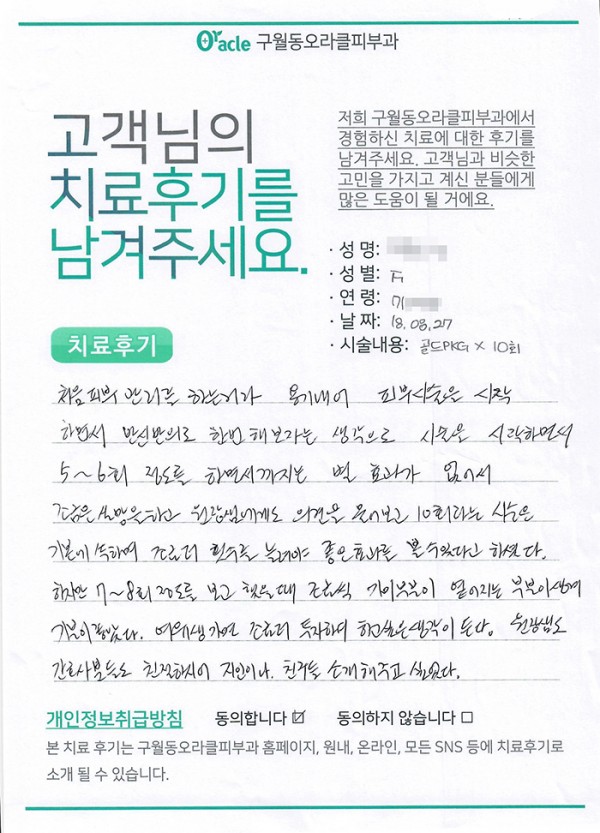 Oracle 구월동오라클피부과
고객님의
치료후기를
남겨주세요.
저희 구월동오라클피부과에서
경험하신 치료에 대한 후기를
남겨주세요. 고객님과 비슷한
고민을 가지고 계신 분들에게
많은 도움이 될 거에요.
· 성 명:
· 성 별: F
· 연 령: 71
· 날 짜: 18.03.27
· 시술내용: 골드PKG × 10회
치료후기
처음 피부 관리를 하는거라 용기내어 피부시술을 시작
하면서 반신반의로 한번 해보자는 생각으로 시술을 시작하면서
5~6회 정도를 하면서까지는 별 효과가 없어서
조금은 실망을하고 원장님에게도 의견을 물어보고 10회라는 시술은
기본에 속하며 조금더 횟수를 늘려야 좋은효과를 볼수있다고 하셨다.
하지만 7~8회 정도를 보고 했을때 조금씩 기미부분이 옅어지는 부분이생겨
기분이좋았다. 여유생기면 조금더 투자하며 하고싶은생각이 든다. 원장샘도
간호사분들도 친절하시어 지인이나. 친구들 소개해주고 싶었다.
개인정보취급방침 동의합니다 ☑ 동의하지 않습니다 □
본 치료 후기는 구월동오라클피부과 홈페이지, 원내, 온라인, 모든 SNS 등에 치료후기로
소개 될 수 있습니다.